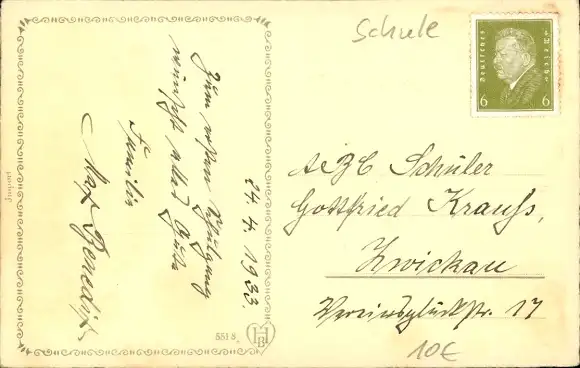 Schule
Deutsches Reich
6 6
24. 4. 1933.
Zum ersten Schulgang
wünscht alles Gute
Familie
Max Benedix
ABC Schüler
Gottfried Krauß,
Zwickau
Vereinsglückstr. 17
551 5.
HB
10€